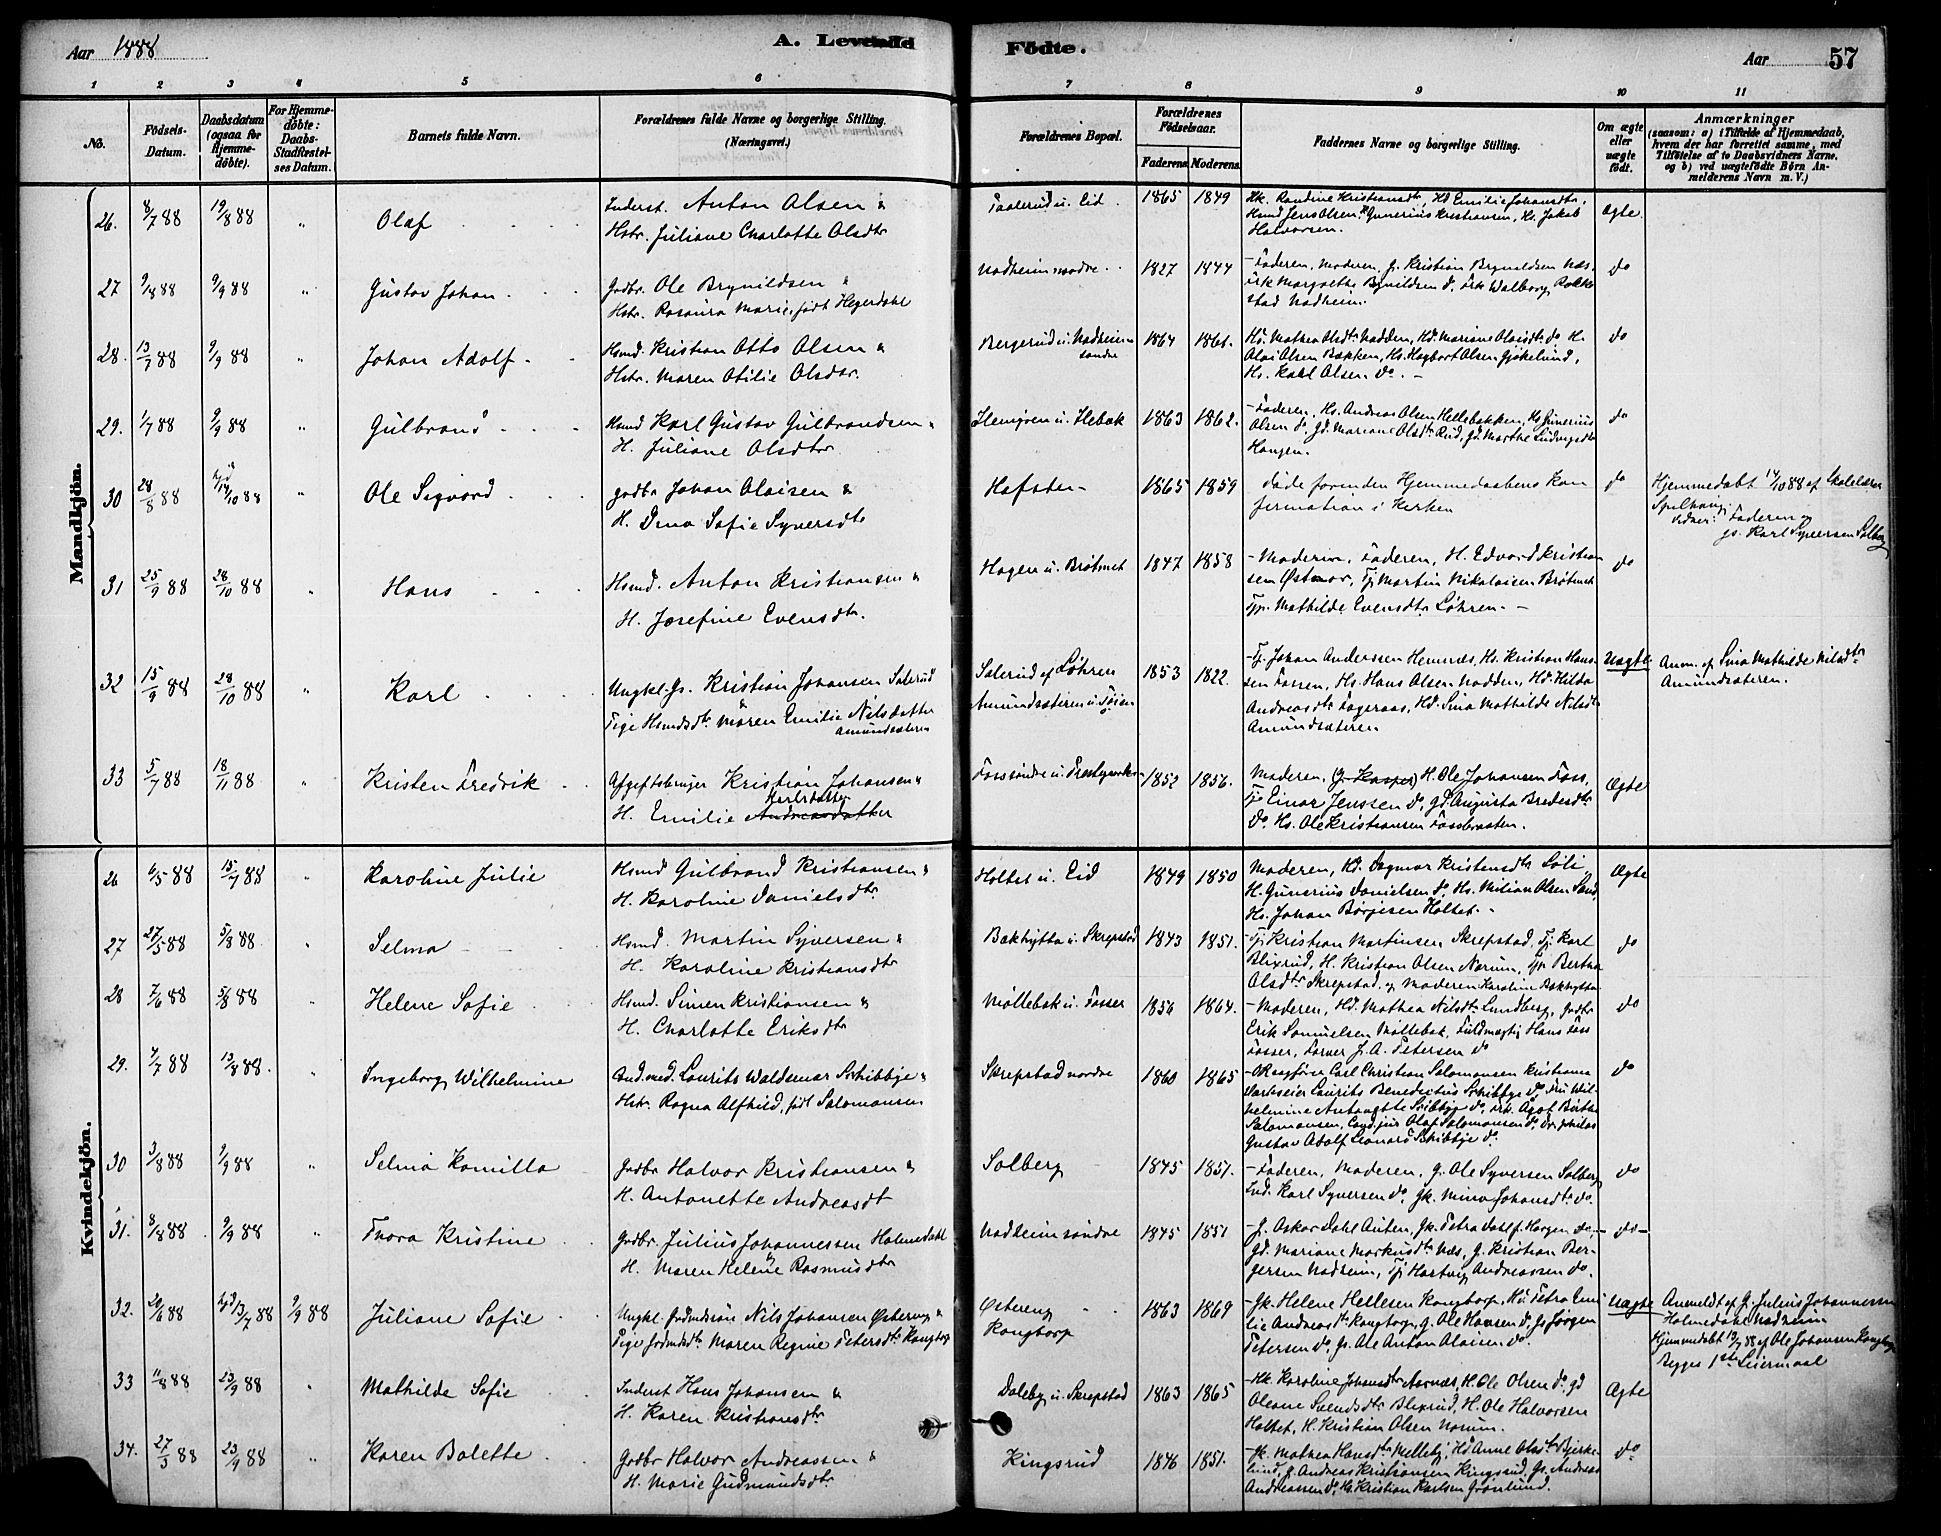 Aar 1888
A. Levende
Födte.
Aar
57
1 2 3 4 5 6 7 8 9 10 11
No.
Födsels-
Datum.
Daabsdatum
(ogsaa for
Hjemme-
döbte).
For Hjemme-
döbte:
Daabs-
Stadfæstel-
ses Datum.
Barnets fulde Navn.
Forældrenes fulde Navne og borgerlige Stilling.
(Næringsvei.)
Forældrenes Bopæl.
Forældrenes
Födselsaar.
Faderens. Moderens.
Faddernes Navne og borgerlige Stilling.
Om ægte
eller
uægte
födt.
Anmærkninger
(saasom: a) i Tilfælde af Hjemmedaab,
hvem der har forrettet samme, med
Tilföielse af to Daabsvidners Navne,
og b) ved uægtefödte Börn An-
melderens Navn m. V.)
Mandkjön.
26. 8/7 88 19/8 88 " Olaf Inderst. Anton Olsen &
Hstr. Juliane Charlotte Olsdtr
Taalerud u. Eid. 1865 1849 Hk. Randine Kristiansdtr, Hd Emilie Johansdtr,
Hsmd Jens Olsen, Gunerius Kristiansen, Hs. Jakob
Halvorsen.
Ægte
27 9/8 88 9/9 88 " Gustav Johan Gbr. Ole Brynildsen &
Hstr. Rosaura Marie, født Hegerdahl
Nadheim nordre 1827 1844 - Faderen, Moderen, G. Kristian Brynildsen Næs
Frk Margrethe Brynildsen do, Frk Walborg Rakke-
stad Nadheim.
do
28. 13/7 88 9/9 88 " Johan Adolf Hsmd. Kristian Otto Olsen &
Hstr. Maren Otilie Olsdtr.
Bergerud u. Nadheim
søndre
1864 1861. Hd. Mathea Olsdtr Nadden, Hd. Mariane Olaisdtr do, H.
Olai Olsen Bækken, Hs. Hagbart Olsen Gjøkelund,
Hs. Karl Olsen do. -
do
29. 1/7 88 9/9 88 " Gulbrand Hsmd Karl Gustav Gulbrandsen &
H. Juliane Olsdtr
1863 1862. - Faderen, Hs. Andreas Olsen Hellebækken, Hs Gunerius
Olsen do, Gd. Mariane Olsdtr Rud, Gd. Marthe Ludvigsdtr
Haugen.
do
30 28/8 88 14/10 88 " Ole Sigvard Gbr. Johan Olaisen &
H. Dina Sofie Syversdtr
Hafsten 1865 1859 Døde forinden Hjemmedaabens Kon
firmation i Kirken
do
Hjemmedøbt 14/10 88 af Skolelærer
Spelhaug.
Vidner: Faderen og
Gs. Karl Syversen Solberg
31 25/9 88 28/10 88 " Hans Hsmd. Anton Kristiansen &
H. Josefine Evensdtr.
Hagen u. Brøtmet 1847 1858 - Moderen, Faderen, H. Edvard Kristian
sen Østmor, Tj Martin Nikolaisen Brøtmet
Tjp. Mathilde Evensdtr Løhren. -
do
32 15/9 88 28/10 88 " Karl Ungkl. Gs. Kristian Johansen Solerud
Pige Hsmdsdtr. Maren Emilie Nilsdatter
Amundsæteren
Solerud af Løhren
Amundsæteren u. Tøien
1853 1822. - Tj. Johan Anderssen Hemnæs, Hs. Kristian Han-
sen Fossen, Hs. Hans Olsen Nadden, Hd. Hilda
Andreasdtr Fageraas, Hd. Sina Mathilde Nilsdtr
Amundsæteren.
Uægte
Anm. af Sina Mathilde Nilsdtr
Amundsæteren.
33 5/7 88 18/11 88 " Kristen Fredrik Afgiftsbruger Kristian Johansen &
H. Emilie Andreasdatter Karlsdatter
Foss søndre u. Prestegaarden 1852 1856. Moderen, (G. Kasper) H. Ole Johansen Foss,
Tj. Einar Jenssen do, Gd. Augusta Bredesdtr
do. Hs. Ole Kristiansen Fossbraaten.
Ægte
Kvindekjön.
26 6/5 88 15/7 88 " Karoline Julie Hsmd Gulbrand Kristiansen &
H. Karoline Danielsdtr.
Holtet u. Eid 1849 1850 Moderen, Hd. Dagmar Kristensdtr Løli,
H. Gunerius Danielsen do, Hs. Milian Olsen Sand,
Hs. Johan Børgesen Holtet. -
Ægte
27 27/5 88 5/8 88 " Selma Hsmd. Martin Syversen &
H. Karoline Kristiansdtr
Bækhytta u. Skrepstad 1843 1851. - Tj Kristian Martinsen Skrepstad, Tj Karl
Blixrud, H. Kristian Olsen Narum, Tjp Bertha
Olsdtr Skrepstad og Moderen Karoline Bækhytta
do
28 7/6 88 5/8 88 " Helene Sofie Hsmd. Simen Kristiansen &
H. Charlotte Eriksdtr
Møllebæk u. Fosser 1856 1864. - Moderen, Hd. Mathea Nilsdtr Lundberg, Gbr
Erik Samuelsen Møllebæk, Fuldmægtig Hans Foss
Fosser, Farver J. A. Petersen do
do
29. 4/7 88 13/8 88. " Ingeborg Wilhelmine Cand. med. Laurits Waldemar Schibbye &
Hstr. Ragna Alfhild, født Salomonsen
Skrepstad nordre 1860 1865 - Overagfører Carl Christian Salomonsen Kristiania
Værkseier Laurits Benedictus Schibbye do, Fru Wil-
helmine Antonette Schibbye do, Frk. Agot Birthe
Salomonsen, Cand. jur. Olaf Salomonsen do,
Gustav Adolf Leonard Schibbye do.
do
30 3/8 88 9/9 88 " Selma Kamilla Gbr Halvor Kristiansen &
H. Antonette Andreasdt
Solberg 1845 1851. - Faderen, Moderen, G. Ole Syversen Solberg
Ind. Karl Syversen do, Gk. Mina Johansdtr do.
do
31. 8/8 88. 9/9 88 " Thora Kristine Gbr. Julius Johannessen Holmedahl
H. Maren Helene Rasmusdtr
Nadheim søndre 1845 1851 - G. Oskar Dahl Auten, Gk. Petra Dahl f. Horgen do, -
Gd. Mariane Markusdtr Næs, G. Kristian Ber-
gersen Nadheim, Tj Hartvig Andreassen do.
do -
32. 20/6 88 13/7 88 9/9 88 Juliane Sofie Ungkl. Gbrdsøn Nils Johansen Østereng &
Pige Gbrdsdtr. Maren Regine Petersdtr Kongtorp
Østereng
Kongtorp
1863 1869 - Gk. Helene Hellesen Kongtorp, Hd. Petra Emi
lie Andreasdtr Kongtorp, G. Ole Hansen do, Gs Jørgen
Petersen do, Gs. Ole Anton Olaisen do.
Uægte
Anmeldt af G. Julius Johannessen
Holmedahl Nadheim
Hjemmedøbt 13/7 88 af Ole Johansen Kongtorp
Begges 1ste Leiermaal
33 11/8 88 23/9 88 " Mathilde Sofie Inderst Hans Johansen &
H. Karen Kristiansdtr
Daleby u. Skrepstad 1863 1865 - Hk. Karoline Johansdtr Aarnæs, H. Ole Olsen do, Gd
Oleane Svendsdtr Blixrud, H. Ole Halvorsen
Holtet, H. Kristian Olsen Narum.
Ægte
34. 27/3 88 23/9 88 " Karen Bolette Gbr Halvor Andreassen &
H. Marie Gudmundsdtr.
Kingsrud 1846 1851. - Gk. Mathea Hansdtr Melleby, Hd Anne Olsdtr Bjerke-
lund, G. Andreas Kristiansen Kingsrud, Gs. Andreas
Andreassen do, Hs. Kristian Karlsen Grønlund.
do